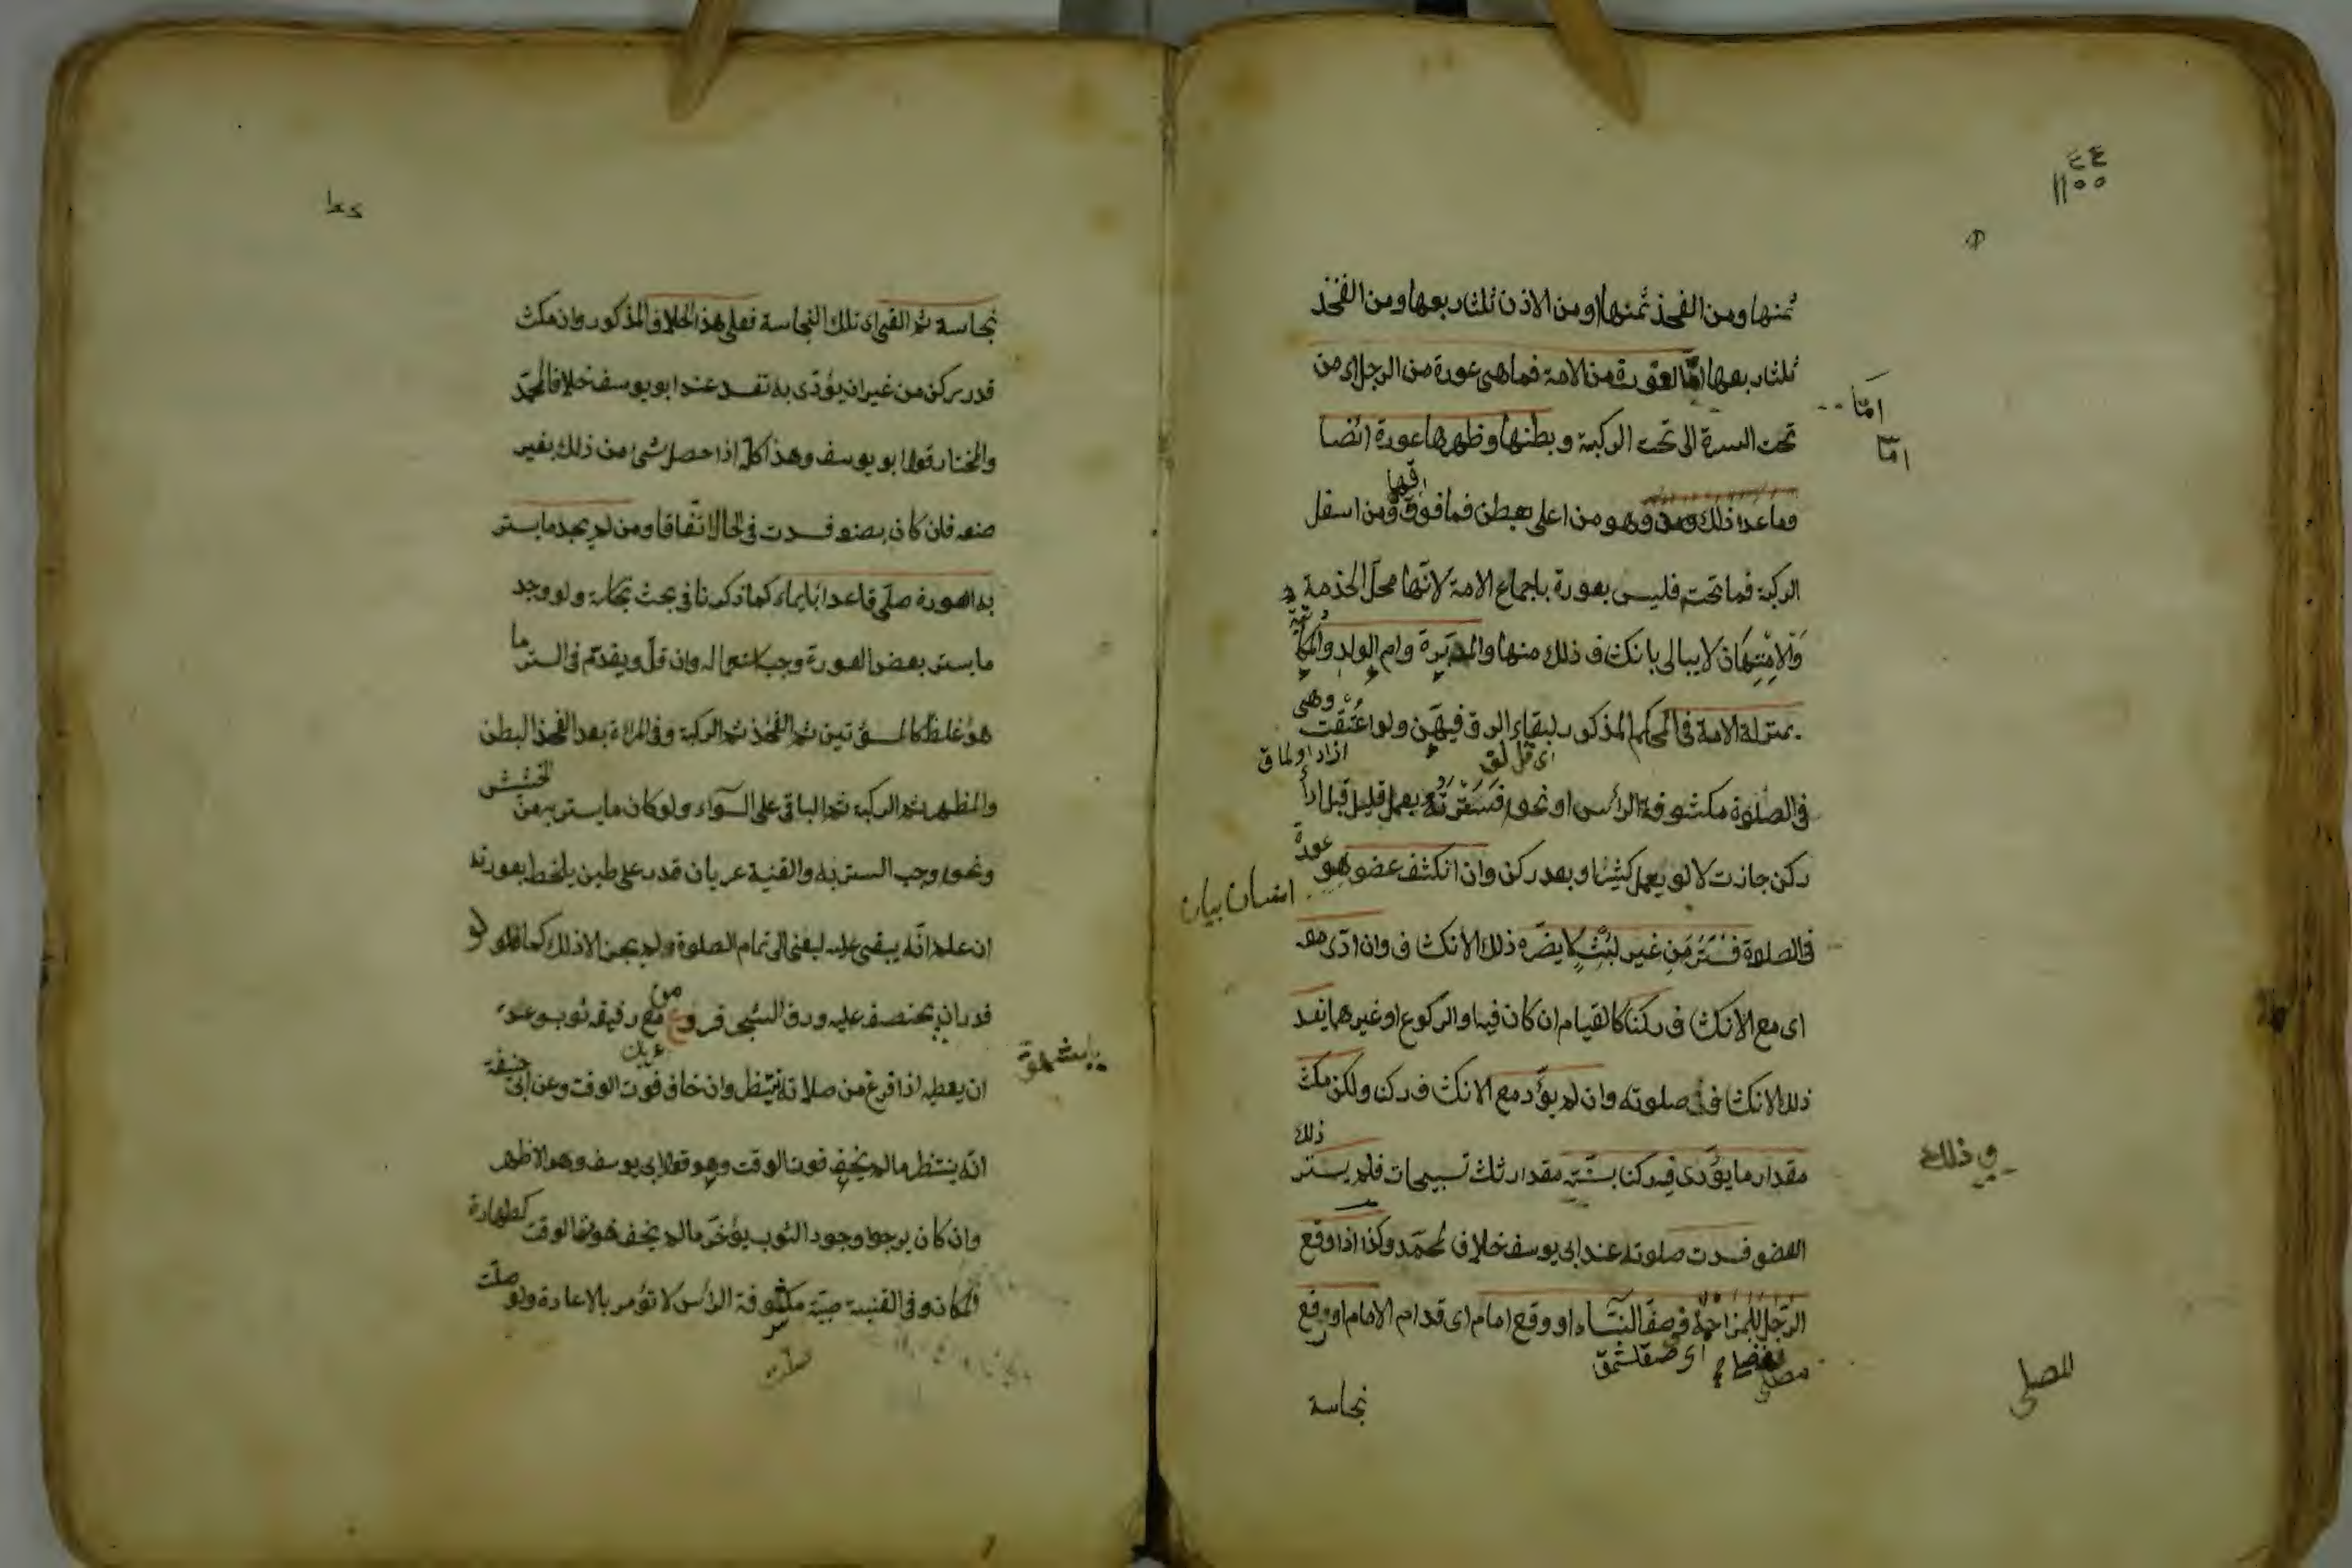 ثمنها ومن الفخذ ثمنها او من الاذن ثلث ربعها ومن الفخذ
ثلث ربعها اما العورة من الامة فما هى عورة من الرجل اى من
تحت السرة الى تحت الركبة وبطنها وظهرها عورة ايضا
وما عدا ذلك وهو من اعلى بطن فما فوق ومن اسفل
الركبة فما تحت فليس بعورة باجماع الامة لانها محل الخذمة
والامتهان لا يبالى بانكشاف ذلك منها والمدبرة وام الولد والمكا
تبة
بمنزلة الامة فى الحكم المذكور لبقاء الرق فيهن ولو اعتقت وهى
فى الصلوة مكشوفة الرأس او نحوه فسترته بعمل قليل قبل ادأ
ركن جازت لا لو بعمل كثير او بعد ركن وان انكشف عضو هو عورة
فى الصلاة فستر من غير لبث لا يضره ذلك الانكشاف وان ادى معه
اى مع الانكشاف ركنا كالقيام ان كان فيه او الركوع او غيرهما يفسد
ذلك الانكشاف صلوته وان لم يؤد مع الانكشاف ركن ولكن مكث
مقدار ما يؤدى فيه ركنا بسنته مقدار ثلث تسبيحات فلم يستر ذلك
العضو فسدت صلوته عند ابى يوسف خلاف لمحمد وكذا اذا وقع
الرجل للمزاحمة فى صف النساء او وقع امام اى قدام الامام او وقع
نجاسة
اما
اما
فى ذلك
المصلى
نجاسة ثم القى اى تلك النجاسة فعلى هذا الخلاف المذكور وان مكث
قدر ركن من غير ان يؤدى به تفسد عند ابو يوسف خلافا لمحمد
والمختار قول ابو يوسف وهذا كله اذا حصل شئ من ذلك بغير
صنعه فان كان بصنعه فسدت فى الحال اتفاقا ومن لم يجد ما يستر
به العورة صلى قاعدا بايماء كما ذكرنا فى بحث ولو وجد
ما يستر بعض العورة وجب استعماله وان قل ويقدم فى الستر ما
هو غلظ كالسوئتين ثم الفخذ ثم الركبة وفى المراة بعد الفخذ البطن
والظهر ثم الركبة ثم الباقى على السواء ولو كان ما يستر به من الحشيش
ونحوه وجب الستر به والقنية عريان قدر على طين يلخط بعورته
ان علم انه يبقى عليه ليفنى الى تمام الصلوة ولم يجز الا ذلك كما لو
قدر ان يخصف عليه ورق الشجر فروع مع رفيقه ثوب وعده
ان يعطيه اذا فرغ من صلاته ينتظر وان خاف فوت الوقت وعن ابى حنيفة
انه ينتظر ما لم يخف فوت الوقت وهو قول ابى يوسف وهو الاظهر
وان كان يرجوا وجود الثوب يؤخر ما لم يخف فوت الوقت كطهارة
المكان وفى القنية صبية مكشوفة الرأس لا تؤمر بالاعادة ولو صلت